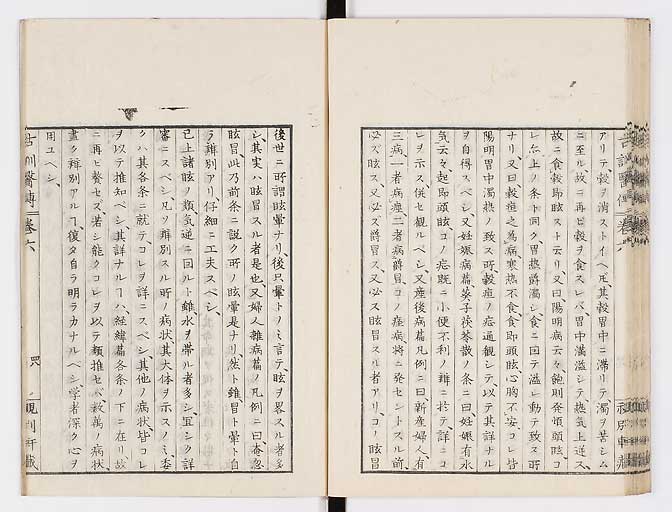 アリテ穀ヲ消ストイヘ𪜈其穀胃中ニ滞リテ濁ヲ苦シム
ニ至ル故ニ再ヒ穀ヲ食スレバ胃中滿溢シテ熱気上逆ス
故ニ食穀即眩スト云リ又曰陽明病云々飽則発煩頭眩コ
レ亦上ノ条ト同ク胃熱爵濁シ食ニ因テ溢レ動テ致ス所
ナリ又曰穀疸之為病寒熱不食食即頭眩心胸不安コレ皆
陽明胃中濁熱ノ致ス所穀疸ノ症通観シテ以テ其詳ナル
ヲ自得スベシ又妊娠病篇葵子茯苓散ノ条ニ曰妊娠有水
気云々起即頭眩コノ症既ニ小便不利ノ辨ニ於テ詳ニコ
レヲ示ス併セ観ルベシ又産後病篇凡例ニ曰新産婦人有
三病一者病痙二者病爵冒コノ痙病将ニ発セントスル前
必ズ眩ス又必ズ爵冒ス又必ズ眩冒スル者アリコノ眩冒
後世ニ所謂眩暈ナリ後只暈トノミ言テ眩ヲ畧スル者多
シ其実ハ眩冒スル者是也又婦人雜病篇ノ凡例ニ曰奄忽
眩冒此乃前条ニ說ク所ノ眩暈是ナリ然ト雖冒ト暈ト自
ラ辨別アリ仔細ニ工夫スベシ
已上諸眩ノ類気逆ニ回ルト雖水ヲ帯ル者多シ宜シク詳
審ニスベシ凡ソ辨別スル所ノ病状其大体ヲ示スノミ委
クハ其各条ニ就テコレヲ詳ニスベシ其他ノ病状皆コレ
ヲ以テ推知ベシ其詳ナルヿハ經緯篇各条ノ下ニ在リ故
ニ再ビ贅セズ若シ能クコレヲ以テ類推セバ数萬ノ病状
盡ク辨別アルヿ復タ自ラ明ラカナルベシ学者深ク心ヲ
用ユベシ
古訓醫傳 卷六